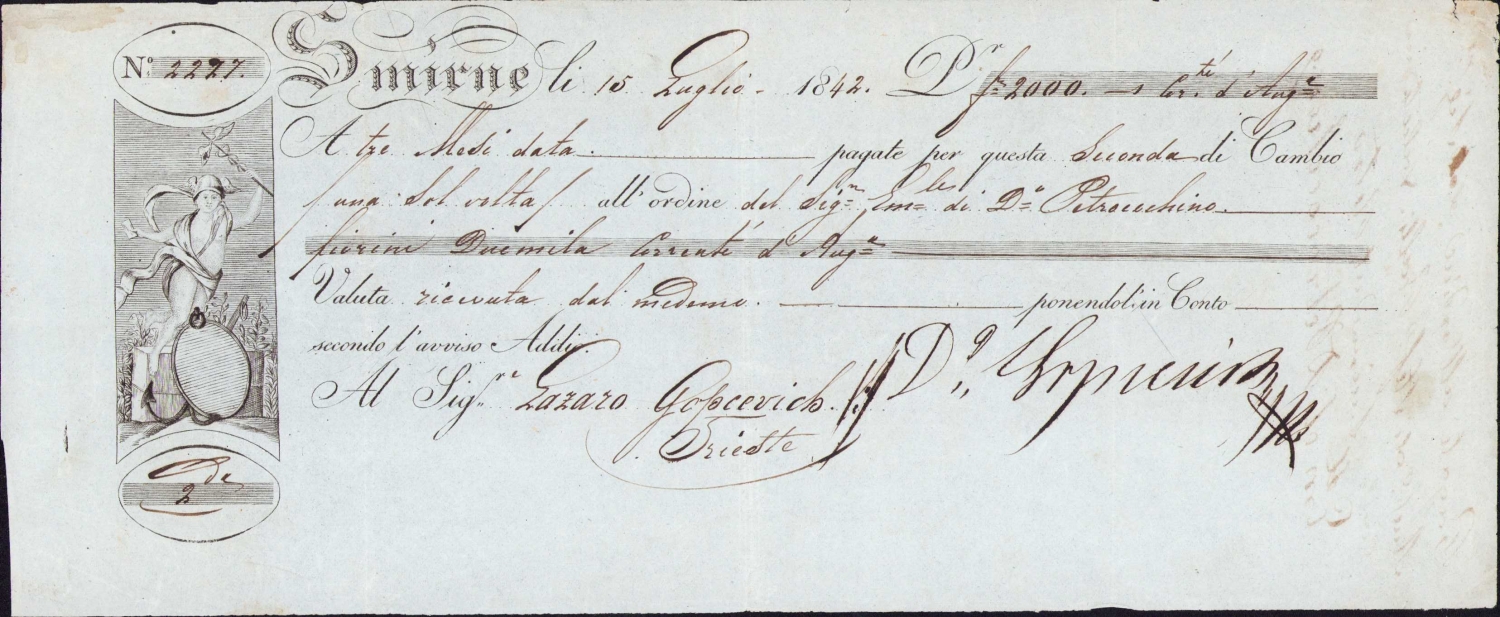 No. 2227. Smirne li 15 Luglio - 1842. Pr. fni 2000. — Corti d'Augta
A tre Mesi data. pagate per questa Seconda di Cambio
/una Sol volta/ all'ordine del Sigr Emle di Dco Petrocochino
fiorini Duemila Correnti d'Augta
Valuta ricevuta dal medemo. ponendoli in Conto
secondo l'avviso Addio.
Al Sigre Lazaro Gopcevich.
Trieste
2da